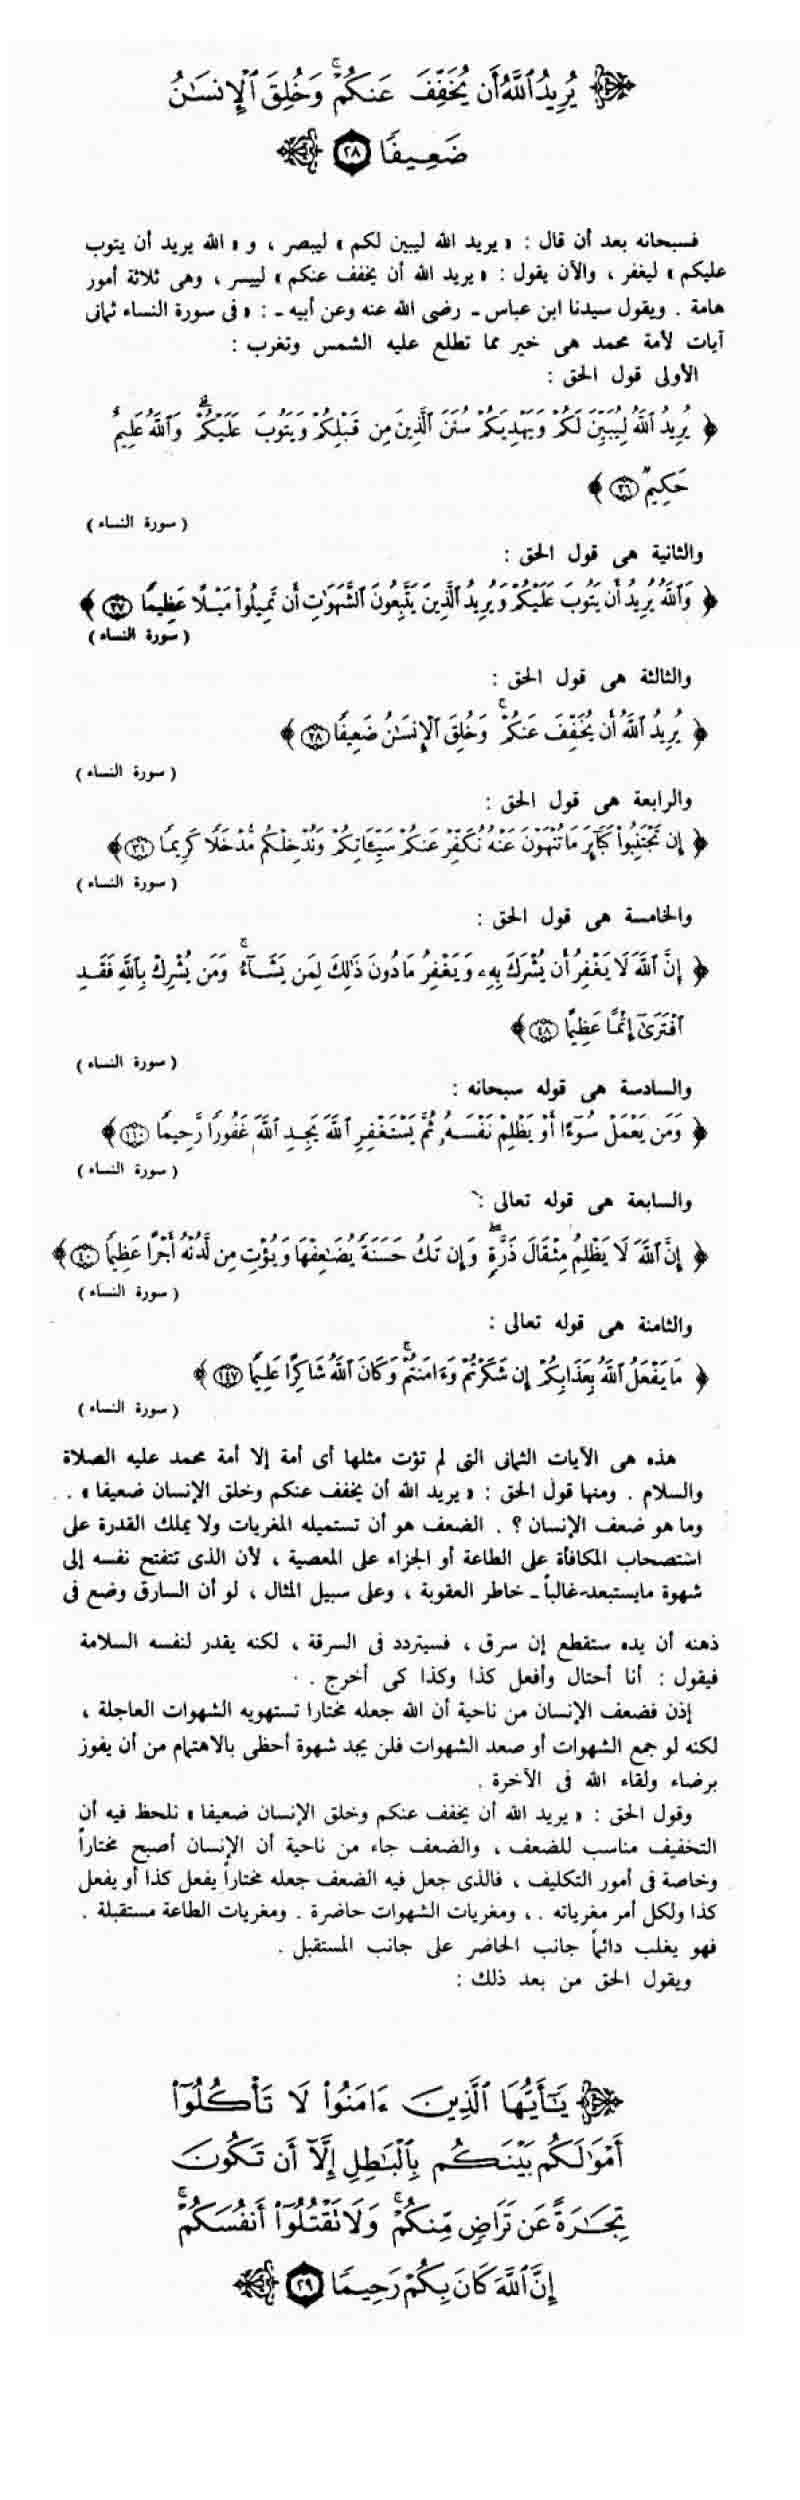 يُرِيدُ ٱللَّهُ أَن يُخَفِّفَ عَنكُمْ ۚ وَخُلِقَ ٱلْإِنسَـٰنُ
ضَعِيفًا ٢٨
فسبحانه بعد أن قال : « يريد الله ليبين لكم » ليبصر ، و « الله يريد أن يتوب
عليكم » ليغفر ، والآن يقول : « يريد الله أن يخفف عنكم » لييسر ، وهى ثلاثة أمور
هامة . ويقول سيدنا ابن عباس - رضى الله عنه وعن أبيه - : « فى سورة النساء ثمانى
آيات لأمة محمد هى خير مما تطلع عليه الشمس وتغرب :
الأولى قول الحق :
﴿ يُرِيدُ ٱللَّهُ لِيُبَيِّنَ لَكُمْ وَيَهْدِيَكُمْ سُنَنَ ٱلَّذِينَ مِن قَبْلِكُمْ وَيَتُوبَ عَلَيْكُمْ ۗ وَٱللَّهُ عَلِيمٌ
حَكِيمٌ ٢٦ ﴾
( سورة النساء )
والثانية هى قول الحق :
﴿ وَٱللَّهُ يُرِيدُ أَن يَتُوبَ عَلَيْكُمْ وَيُرِيدُ ٱلَّذِينَ يَتَّبِعُونَ ٱلشَّهَوَٰتِ أَن تَمِيلُوا۟ مَيْلًا عَظِيمًا ٢٧ ﴾
( سورة النساء )
والثالثة هى قول الحق :
﴿ يُرِيدُ ٱللَّهُ أَن يُخَفِّفَ عَنكُمْ ۚ وَخُلِقَ ٱلْإِنسَـٰنُ ضَعِيفًا ٢٨ ﴾
( سورة النساء )
والرابعة هى قول الحق :
﴿ إِن تَجْتَنِبُوا۟ كَبَآئِرَ مَا تُنْهَوْنَ عَنْهُ نُكَفِّرْ عَنكُمْ سَيِّـَٔاتِكُمْ وَنُدْخِلْكُم مُّدْخَلًا كَرِيمًا ٣١ ﴾
( سورة النساء )
والخامسة هى قول الحق :
﴿ إِنَّ ٱللَّهَ لَا يَغْفِرُ أَن يُشْرَكَ بِهِۦ وَيَغْفِرُ مَا دُونَ ذَٰلِكَ لِمَن يَشَآءُ ۚ وَمَن يُشْرِكْ بِٱللَّهِ فَقَدِ
ٱفْتَرَىٰٓ إِثْمًا عَظِيمًا ٤٨ ﴾
( سورة النساء )
والسادسة هى قوله سبحانه :
﴿ وَمَن يَعْمَلْ سُوٓءًا أَوْ يَظْلِمْ نَفْسَهُۥ ثُمَّ يَسْتَغْفِرِ ٱللَّهَ يَجِدِ ٱللَّهَ غَفُورًا رَّحِيمًا ١١٠ ﴾
( سورة النساء )
والسابعة هى قوله تعالى :
﴿ إِنَّ ٱللَّهَ لَا يَظْلِمُ مِثْقَالَ ذَرَّةٍ ۖ وَإِن تَكُ حَسَنَةً يُضَـٰعِفْهَا وَيُؤْتِ مِن لَّدُنْهُ أَجْرًا عَظِيمًا ٤٠ ﴾
( سورة النساء )
والثامنة هى قوله تعالى :
﴿ مَا يَفْعَلُ ٱللَّهُ بِعَذَابِكُمْ إِن شَكَرْتُمْ وَءَامَنتُمْ ۚ وَكَانَ ٱللَّهُ شَاكِرًا عَلِيمًا ١٤٧ ﴾
( سورة النساء )
هذه هى الآيات الثمانى التى لم تؤت مثلها أى أمة إلا أمة محمد عليه الصلاة
والسلام . ومنها قول الحق : « يريد الله أن يخفف عنكم وخلق الإنسان ضعيفا » .
وما هو ضعف الإنسان ؟ . الضعف هو أن تستميله المغريات ولا يملك القدرة على
استصحاب المكافأة على الطاعة أو الجزاء على المعصية ، لأن الذى تتفتح نفسه إلى
شهوة مايستبعد - غالباً - خاطر العقوبة ، وعلى سبيل المثال ، لو أن السارق وضع فى
ذهنه أن يده ستقطع إن سرق ، فسيتردد فى السرقة ، لكنه يقدر لنفسه السلامة
فيقول : أنا أحتال وأفعل كذا وكذا كى أخرج .
إذن فضعف الإنسان من ناحية أن الله جعله مختارا تستهويه الشهوات العاجلة ،
لكنه لو جمع الشهوات أو صعد الشهوات فلن يجد شهوة أحظى بالاهتمام من أن يفوز
برضاء ولقاء الله فى الآخرة .
وقول الحق : « يريد الله أن يخفف عنكم وخلق الإنسان ضعيفا » نلحظ فيه أن
التخفيف مناسب للضعف ، والضعف جاء من ناحية أن الإنسان أصبح مختاراً
وخاصة فى أمور التكليف ، فالذى جعل فيه الضعف جعله مختاراً يفعل كذا أو يفعل
كذا ولكل أمر مغرياته . ، ومغريات الشهوات حاضرة . ومغريات الطاعة مستقبلة .
فهو يغلب دائماً جانب الحاضر على جانب المستقبل .
ويقول الحق من بعد ذلك :
يَـٰٓأَيُّهَا ٱلَّذِينَ ءَامَنُوا۟ لَا تَأْكُلُوٓا۟
أَمْوَٰلَكُم بَيْنَكُم بِٱلْبَـٰطِلِ إِلَّآ أَن تَكُونَ
تِجَـٰرَةً عَن تَرَاضٍ مِّنكُمْ ۚ وَلَا تَقْتُلُوٓا۟ أَنفُسَكُمْ ۚ
إِنَّ ٱللَّهَ كَانَ بِكُمْ رَحِيمًا ٢٩